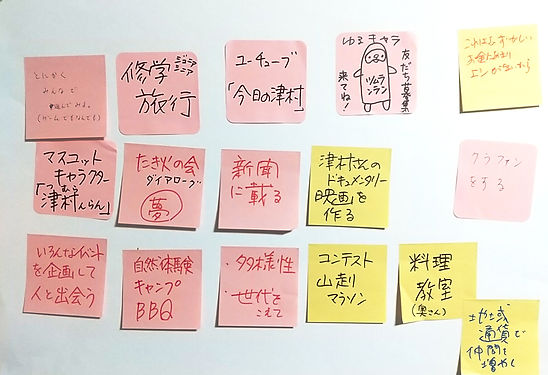 とにかく
みんなで
遊んでみる。
(ゲームでもなんでも)
ジュニア
シニア
修学
旅行
ユーチューブ
「今日の津村」
ゆるキャラ
友だち募集
ツムラ
ンラン
来てね!
これはむずかしい
マスコット
キャラクター
「つむら
津村んらん」
たき火の会
ダイアローグ
夢
新聞
に載る
津村さんの
ドキュメンタリー
映画を
作る
クラファン
をする
いろんなイベント
を企画して
人と出会う
自然体験
キャンプ
BBQ
・多様性
・世代を
こえて
コンテスト
山走り
マラソン
料理
教室
(奥さん)
地域
通貨で
仲間を
増やす